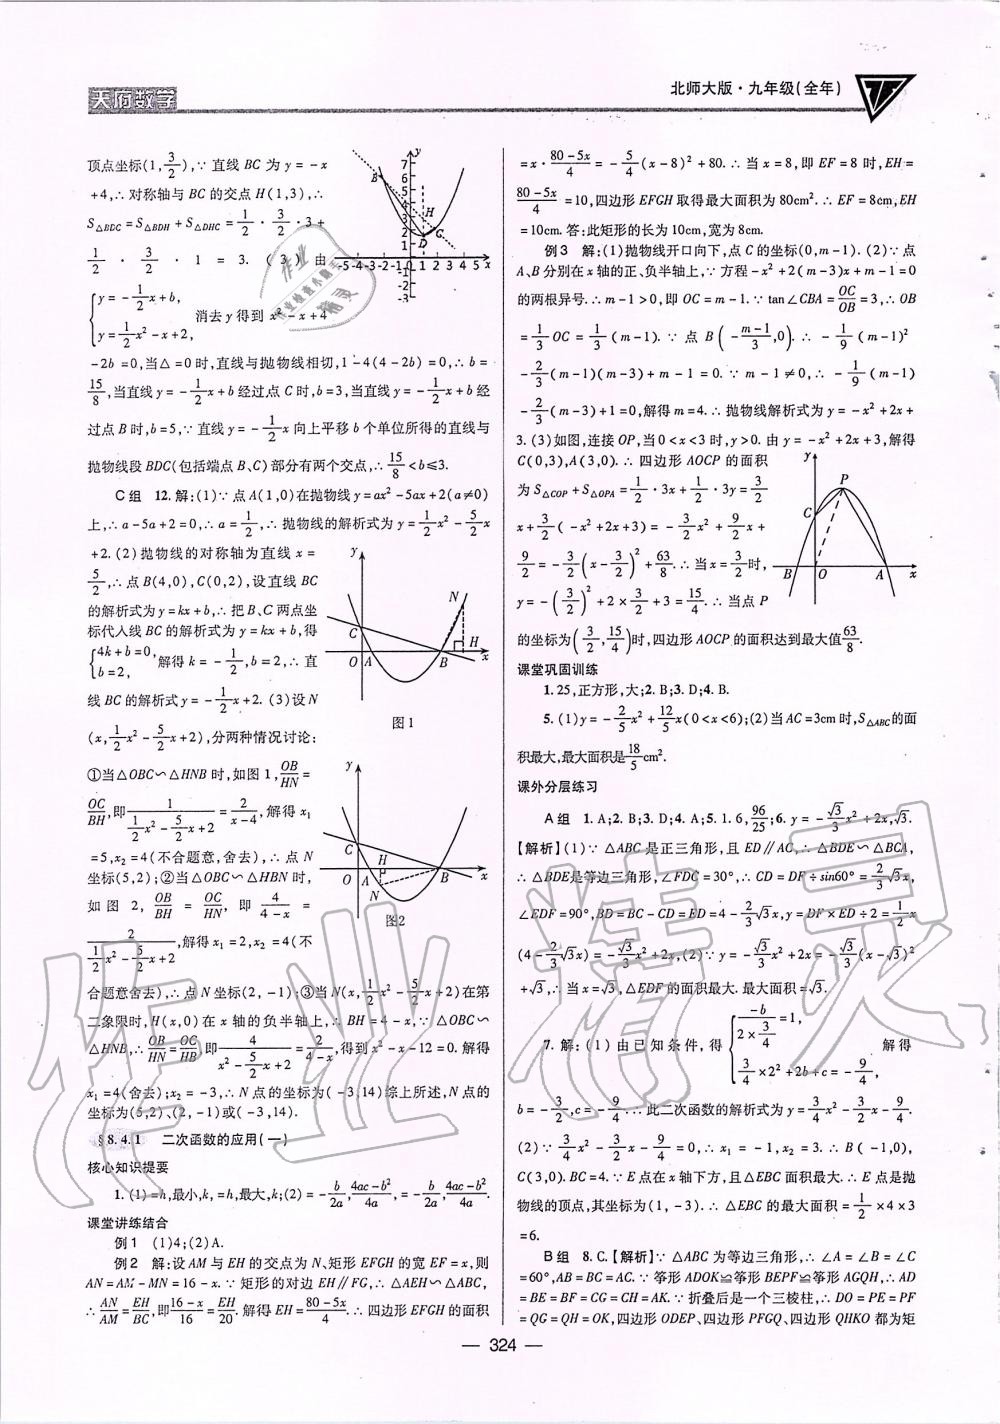 天府数学
北师大版·九年级(全年)
顶点坐标(1,3/2),∵直线BC为y=-x
+4,∴对称轴与BC的交点H(1,3),∴
S△BDC=S△BDH+S△DHC=1/2·3/2·3+
1/2·3/2·1=3.(3)由
{y=-1/2x+b,
y=1/2x²-x+2,
消去y得到x²-x+4
-2b=0,当△=0时,直线与抛物线相切,1-4(4-2b)=0,∴b=
15/8,当直线y=-1/2x+b经过点C时,b=3,当直线y=-1/2x+b经
过点B时,b=5,∵直线y=-1/2x向上平移b个单位所得的直线与
抛物线段BDC(包括端点B、C)部分有两个交点,∴15/8<b≤3.
C组 12.解:(1)∵点A(1,0)在抛物线y=ax²-5ax+2(a≠0)
上,∴a-5a+2=0,∴a=1/2,∴抛物线的解析式为y=1/2x²-5/2x
+2.(2)抛物线的对称轴为直线x=
5/2,∴点B(4,0),C(0,2),设直线BC
的解析式为y=kx+b,∴把B、C两点坐
标代入线BC的解析式为y=kx+b,得
{4k+b=0,
b=2,
解得k=-1/2,b=2,∴直
线BC的解析式y=-1/2x+2.(3)设N
(x,1/2x²-5/2x+2),分两种情况讨论:
①当△OBC∽△HNB时,如图1,OB/HN=
OC/BH,即1/(1/2x²-5/2x+2)=2/(x-4),解得x₁
=5,x₂=4(不合题意,舍去),∴点N
坐标(5,2);②当△OBC∽△HBN时,
如图2,OB/BH=OC/HN,即4/(4-x)=
2/(1/2x²-5/2x+2),解得x₁=2,x₂=4(不
合题意舍去),∴点N坐标(2,-1);③当N(x,1/2x²-5/2x+2)在第
二象限时,H(x,0)在x轴的负半轴上,∴BH=4-x,∵△OBC∽
△HNB,∴OB/HN=OC/HB,即4/(x²-5/2x+2)=2/(4-x),得到x²-x-12=0.解得
x₁=4(舍去);x₂=-3,∴N点的坐标为(-3,14)综上所述,N点的
坐标为(5,2)、(2,-1)或(-3,14).
§8.4.1 二次函数的应用(一)
核心知识提要
1.(1)=h,最小,k,=h,最大,k;(2)=-b/2a,(4ac-b²)/4a,=-b/2a,(4ac-b²)/4a.
课堂讲练结合
例1 (1)4;(2)A.
例2 解:设AM与EH的交点为N,矩形EFGH的宽EF=x,则
AN=AM-MN=16-x.∵矩形的对边EH∥FG,∴△AEH∽△ABC,
∴AN/AM=EH/BC,即(16-x)/16=EH/20.解得EH=(80-5x)/4∴四边形EFGH的面积
7
6
5
4
3
2
1
-1
-2
-3
-5-4-3-2-1 O 1 2 3 4 5 x
y
B
H
C
D
y
N
C
H
O A B x
图1
y
C
H
O A B x
N
图2
=x·(80-5x)/4=-5/4(x-8)²+80.∴当x=8,即EF=8时,EH=
(80-5x)/4=10,四边形EFGH取得最大面积为80cm².∴EF=8cm,EH
=10cm.答:此矩形的长为10cm,宽为8cm.
例3 解:(1)抛物线开口向下,点C的坐标(0,m-1).(2)∵点
A、B分别在x轴的正、负半轴上,∵方程-x²+2(m-3)x+m-1=0
的两根异号.∴m-1>0,即OC=m-1.∵tan∠CBA=OC/OB=3,∴OB
=1/3OC=1/3(m-1).∵点B(-(m-1)/3,0).∴-1/9(m-1)²
-2/3(m-1)(m-3)+m-1=0.∵m-1≠0,∴-1/9(m-1)
-2/3(m-3)+1=0,解得m=4.∴抛物线解析式为y=-x²+2x+
3.(3)如图,连接OP,当0<x<3时,y>0.由y=-x²+2x+3,解得
C(0,3),A(3,0).∴四边形AOCP的面积
为S△COP+S△OPA=1/2·3x+1/2·3y=3/2
x+3/2(-x²+2x+3)=-3/2x²+9/2x+
9/2=-3/2(x-3/2)²+63/8.∴当x=3/2时,
y=-(3/2)²+2×3/2+3=15/4.∴当点P
的坐标为(3/2,15/4)时,四边形AOCP的面积达到最大值63/8.
y
P
C
B O A x
课堂巩固训练
1.25,正方形,大;2.B;3.D;4.B.
5.(1)y=-2/5x²+12/5x(0<x<6);(2)当AC=3cm时,S△ABC的面
积最大,最大面积是18/5cm².
课外分层练习
A组 1.A;2.B;3.D;4.A;5.1.6,96/25;6.y=-√3/3x²÷2x,√3.
【解析】(1)∵△ABC是正三角形,且ED∥AC,∴△BDE∽△BCA,
∴△BDE是等边三角形,∠FDC=30°,∴CD=DF÷sin60°=2/3√3x,
∠EDF=90°,BD=BC-CD=ED=4-2/3√3x,y=DF×ED÷2=1/2x
(4-2/3√3x)=-√3/3x²+2x,(2)∵y=-√3/3x²+2x=-√3/3(x-√3)²
+√3,∴当x=√3,△EDF的面积最大.最大面积=√3.
7.解:(1)由已知条件,得{-b/(2×3/4)=1,
3/4×2²+2b+c=-9/4,
解得
b=-3/2,c=-9/4.∴此二次函数的解析式为y=3/4x²-3/2x-9/4.
(2)∵3/4x²-3/2x-9/4=0,∴x₁=-1,x₂=3.∴B(-1,0),
C(3,0).BC=4.∵E点在x轴下方,且△EBC面积最大.∴E点是抛
物线的顶点,其坐标为(1,-3).∴△EBC的最大面积=1/2×4×3
=6.
B组 8.C.【解析】∵△ABC为等边三角形,∴∠A=∠B=∠C
=60°,AB=BC=AC.∵筝形ADOK≌筝形BEPF≌筝形AGQH,∴AD
=BE=BF=CG=CH=AK.∵折叠后是一个三棱柱,∴DO=PE=PF
=QG=QH=OK,四边形ODEP、四边形PFGQ、四边形QHKO都为矩
— 324 —
作业精灵